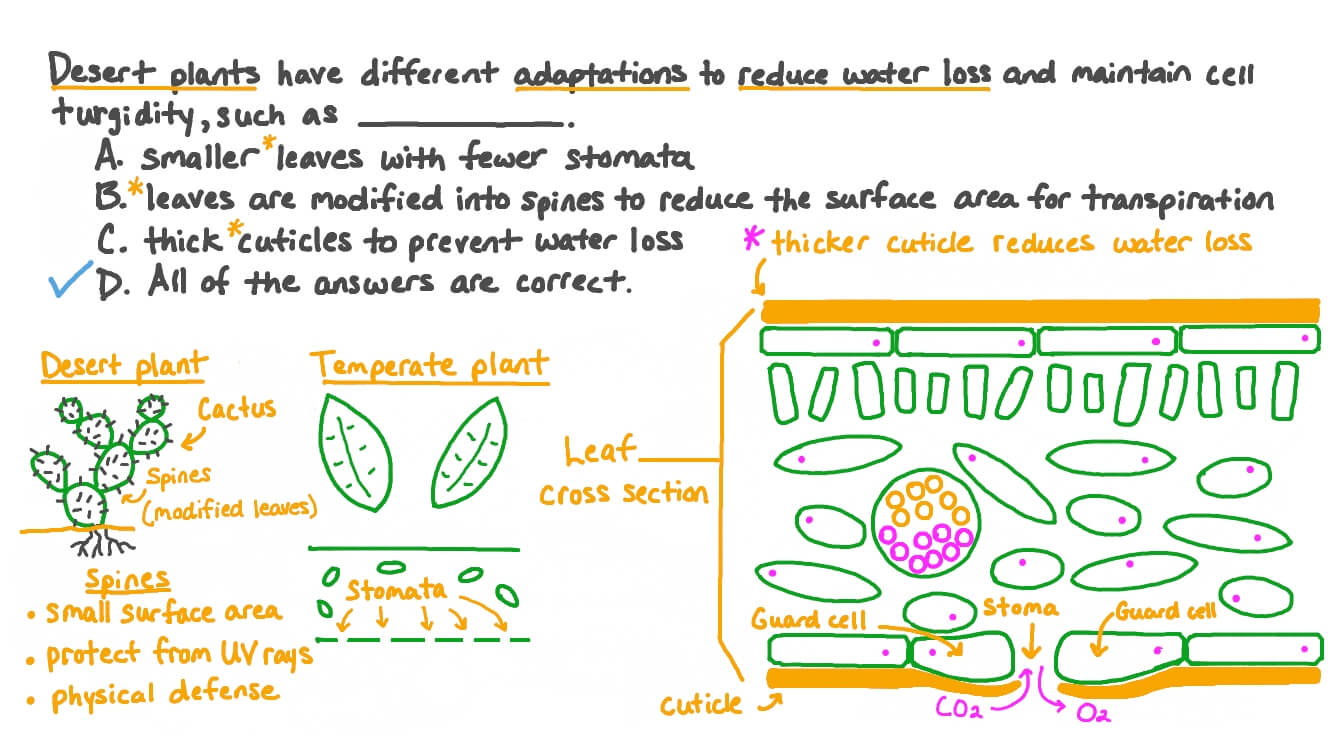 Desert plants have different adaptations to reduce water loss and maintain cell
turgidity, such as __________.
A. smaller *leaves with fewer stomata
B. *leaves are modified into spines to reduce the surface area for transpiration
C. thick *cuticles to prevent water loss
* thicker cuticle reduces water loss
✓ D. All of the answers are correct.
Desert plant
Cactus
Spines
(modified leaves)
Spines
• small surface area
• protect from UV rays
• physical defense
Temperate plant
Stomata
Leaf
cross section
Guard cell
Stoma
Guard cell
cuticle
CO₂
O₂